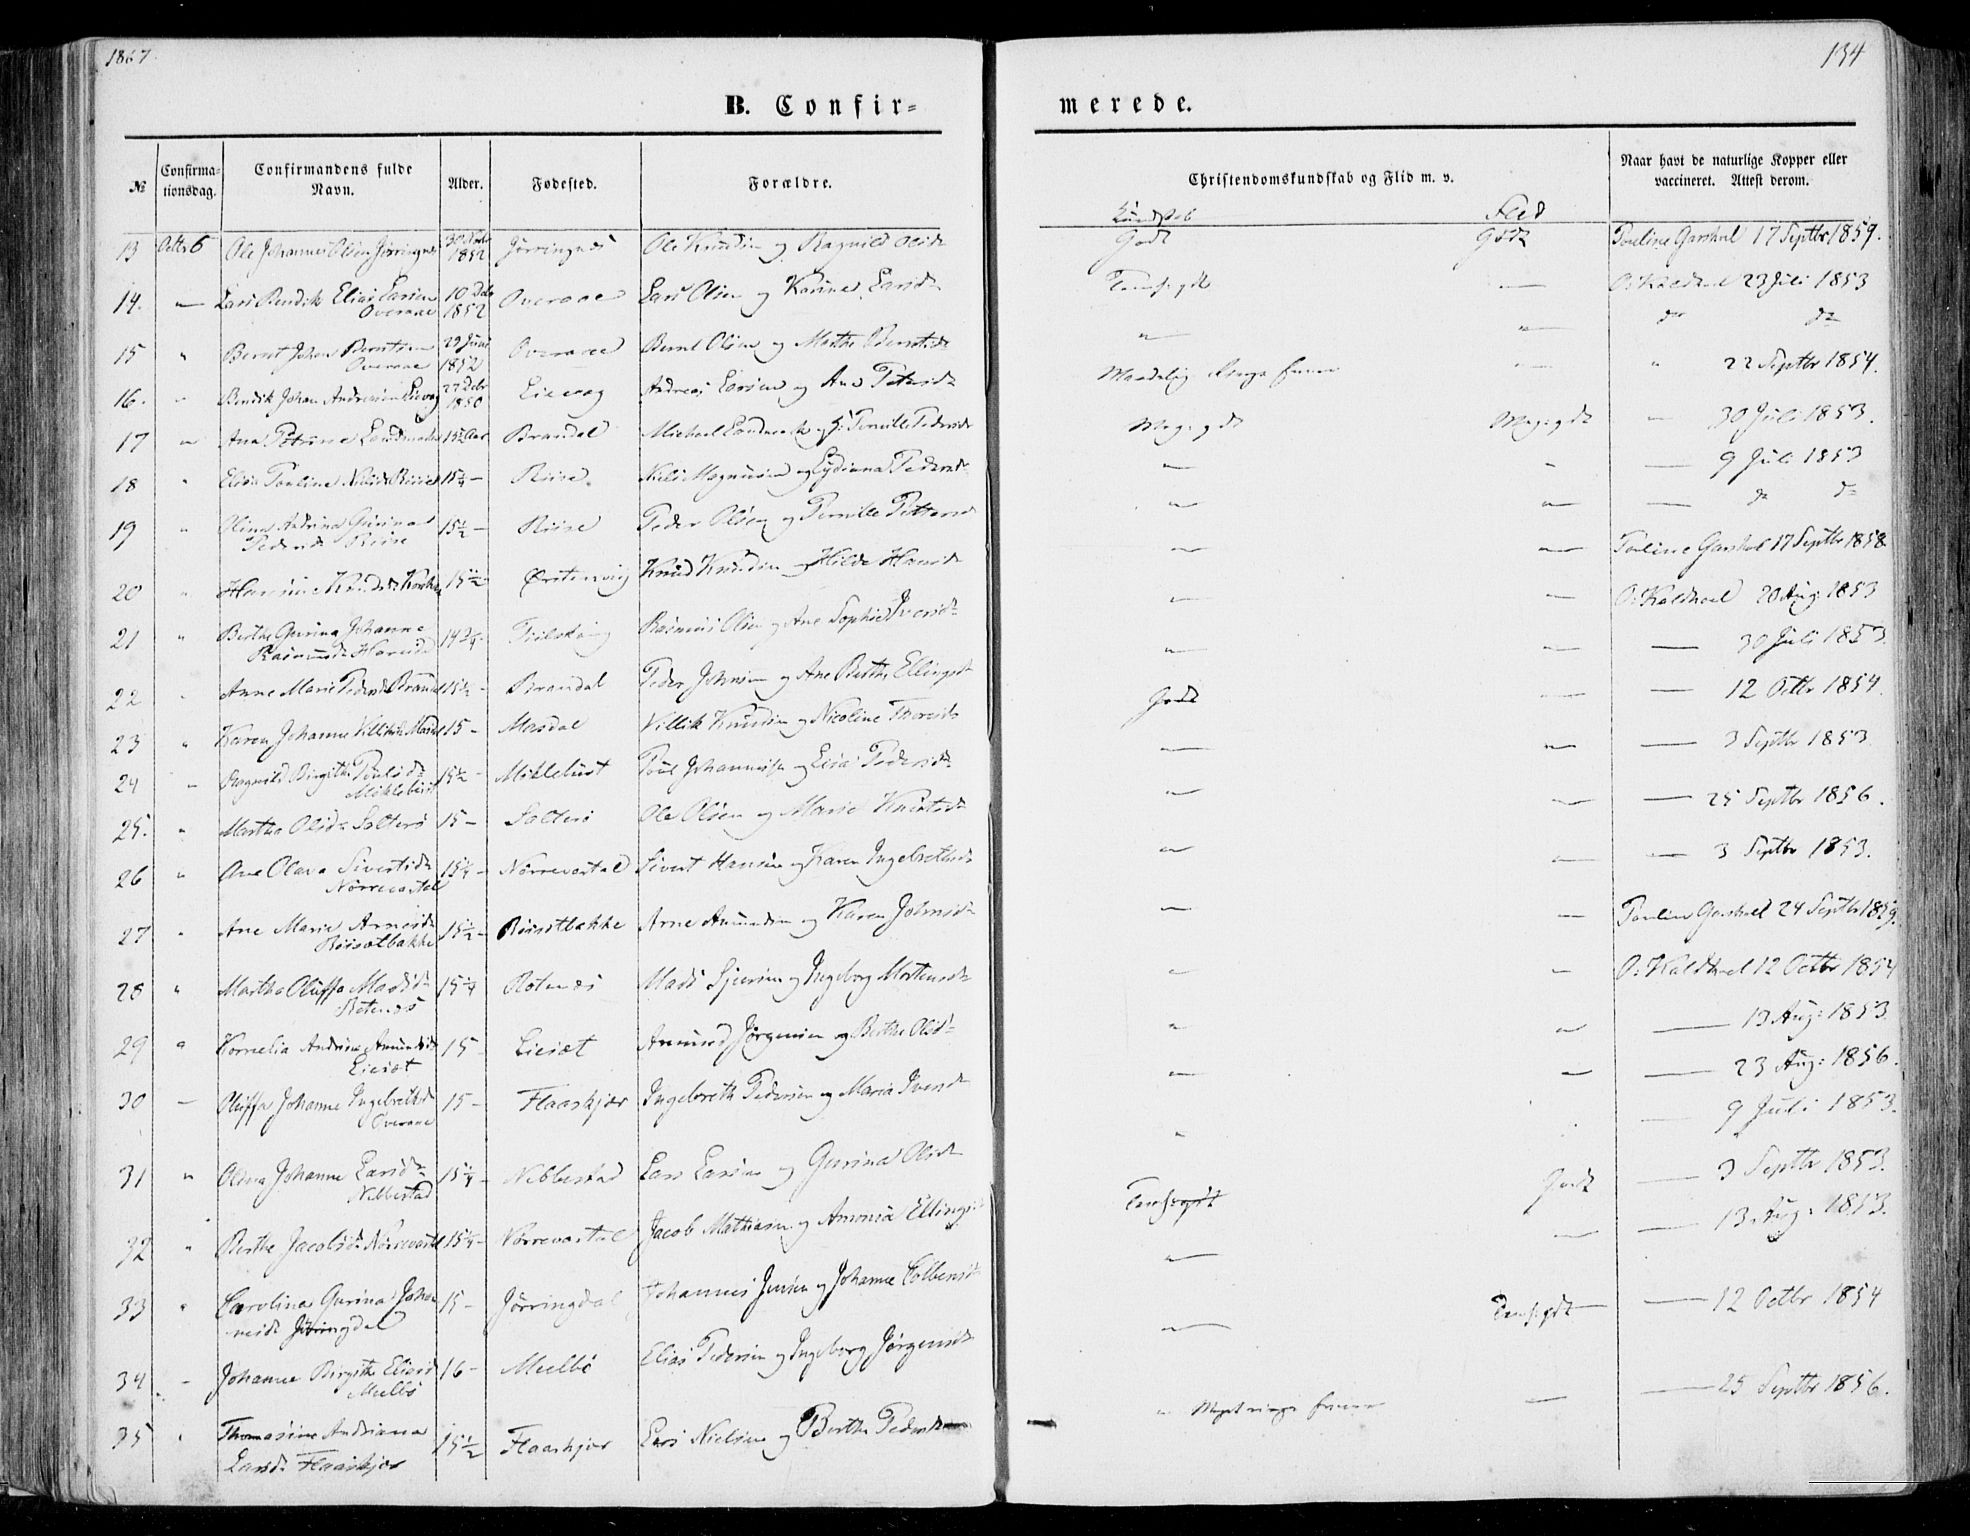 1867.
134
B. Confir=
merede.
№
Confirma=
tionsdag.
Confirmandens fulde
Navn.
Alder.
Fødested.
Forældre.
Christendomskundskab og Flid m. v.
Naar havt de naturlige Kopper eller
vaccineret. Attest derom.
Kundskab Flid
13 Octb 6 Ole Johannes Olsen Jørringnes 1852 Jørringnes Ole Knudsen og Ragnild Olsd Godt Godt Pouline Garshol 17 Septbr 1859.
14. — Lars Bendik Elias Larsen
Overaae 10 Debr 1852 Overaae Lars Olsen og Karine Larsd — O: Kaldhoel 23 Juli 1853
15 " Bernt Johan Berntsen
Overaae 29 Juni 1852 Overaae Bernt Olsen og Marthe Berntsd " " do do
16. " Bendik Johan Andreasen Lievag 27 Debr 1850 Lievag Andreas Larsen og Ane Petersd — " 22 Septbr 1854.
17 " Ane Petrine Landmark 15½ Aar Brandal Michael Landmark og Pernille Pedersd Meg: gdt Meg: gdt — 30 Juli 1853.
18 " Elise Pouline Nilsd Riise 15¼ — Riise Nils Magnusen og Lydiana Pedersd — " — 9 Juli 1853
19 " Oline Andrina Gurina
Pedersd Riise 15½ — Riise Peder Olsen og Pernille Pettersd — — — do do
20 " Hansine Knudsd 15½ Ørstenvig Knud Knudsen og Hilda Hansd — — Pouline Garshol 17 Septbr 1858
21 " Berthe Gurina Johanne
Rasmusd Hareide 14¾ Rasmus Olsen og Ane Sophie Iversd — — O: Kaldhoel 20 Aug: 1853
22 " Anne Marie Pedersd Brandal 15½ — Brandal Peder Johnsen og Ane Berthe Ellingsd — — — 30 Juli 1853.
23 " Karen Johanne Villiksd Masdal 15 — Masdal Villik Knudsen og Nicoline Thoresd Godt — — 12 Octbr 1854.
24 " Ragnild Birgithe Poulsd
Møklebust 15½ — Møklebust Poul Johannesen og Lisa Pedersd — — — 3 Septbr 1853.
25. " Martha Olsd Salterø 15 — Salterø Ole Olsen og Marie Knutsd — — — 25 Septbr 1856.
26 " Ane Olava Sivertsd
Nørrevartdal 15¼ — Nørrevartdal Sivert Hansen og Karen Ingebrethsd — — — 3 Septbr 1853.
27 " Ane Marie Arnesd
Riisetbakke 15½ — Riisetbakke Arne Amundsen og Karen Johnsd — — Pouline Garshol 24 Septbr 1859.
28 " Martha Oluffa Madsd
Rotenes 15¼ Rotenes Mads Sjursen og Ingeborg Mortensd — — O: Kaldhoel 12 Octbr 1854
29 " Kornelia Andrine Amundsd
Liesæt 15 — Liesæt Amund Jørgensen og Berthe Olsd " — — 13 Aug: 1853.
30 — Oluffa Johanne Ingebrethsd
Overaae 15 — Flaaskjær Ingebreth Pedersen og Maria Iversd — — — 23 Aug: 1856.
— 9 Juli 1853.
31 " Olina Johanne Larsd
Nebbestad 15¼ — Nebbestad Lars Larsen og Gurina Olsd " Godt — 3 Septbr 1853.
32 " Berthe Jacobsd Nørrevartdal 15¼ — Nørrevartdal Jacob Mathiasen og Amonia Ellingsd — — 13 Aug: 1853.
33 " Carolina Gurina Johan=
nesd Jørringdal 15 — Jørringdal Johannes Jensen og Johanne Colbensd — — 12 Octbr 1854
34 — Johanne Birgithe Eliasd
Meelbø 16 — Meelbø Elias Pedersen og Ingeborg Jørgensd —
35 " Thomasine Andriana
Larsd Flaaskjær 15½ Flaaskjær Lars Nielsen og Berthe Pedersd " Meget ringe — — 25 Septbr 1856.